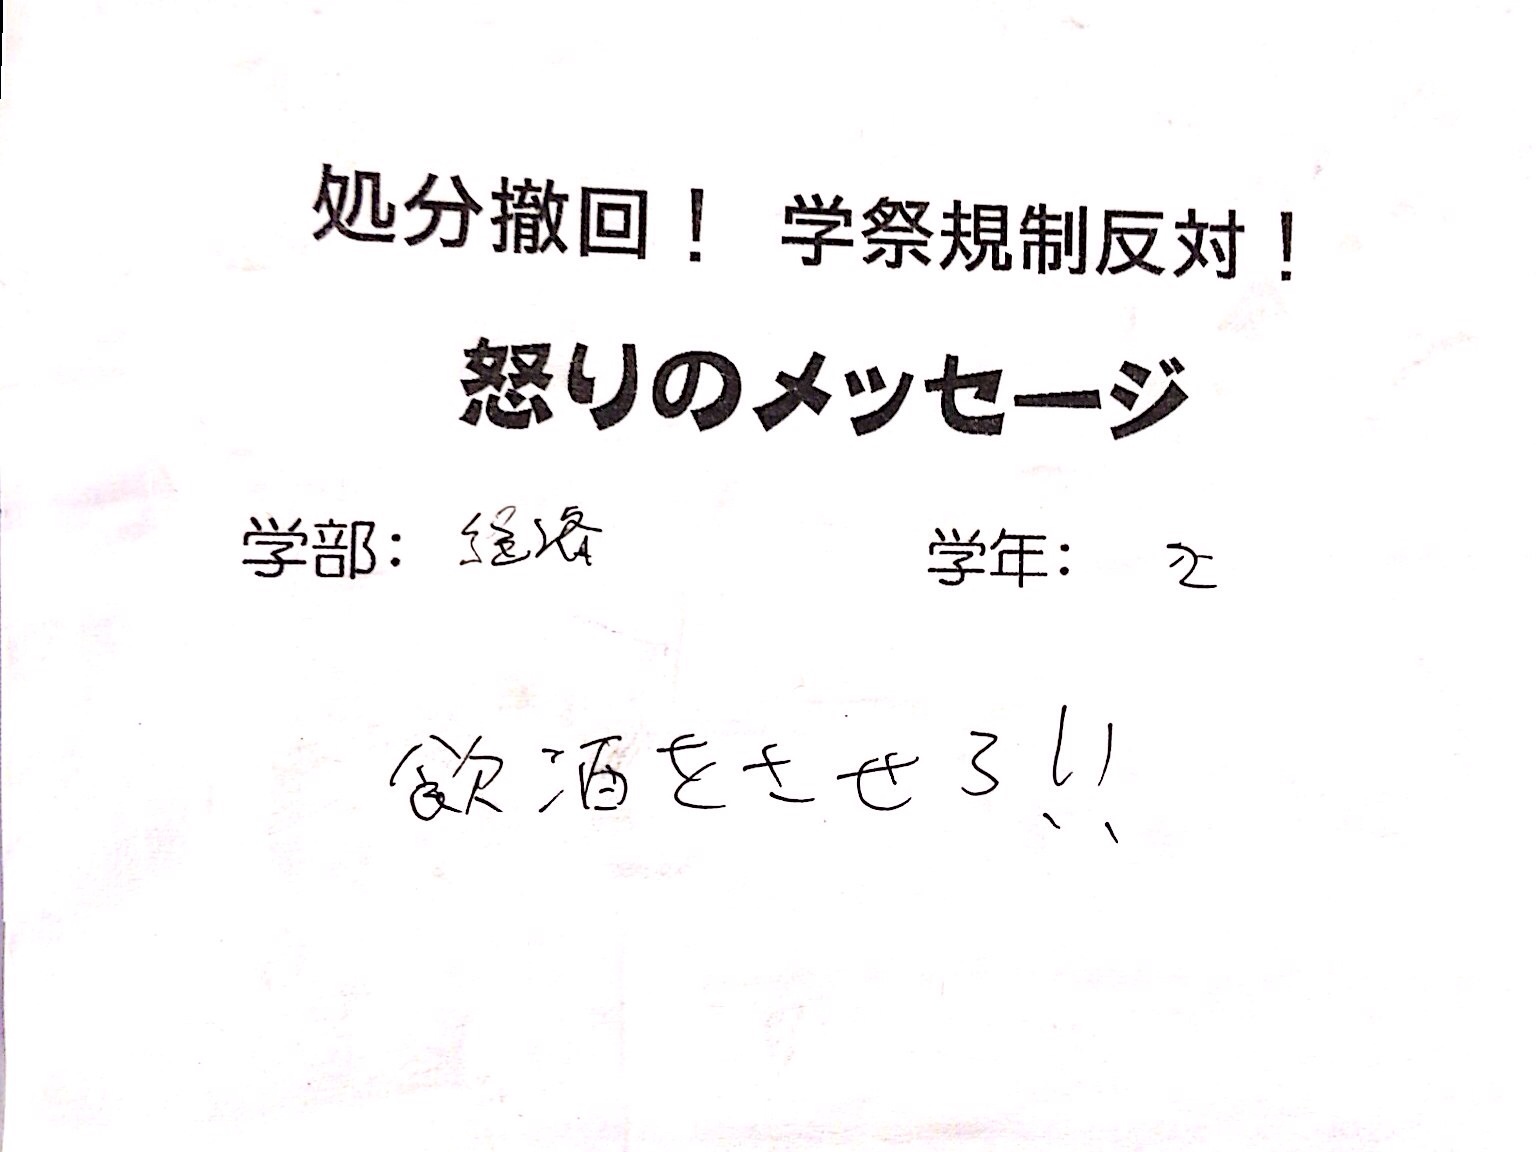 処分撤回！ 学祭規制反対！
怒りのメッセージ
学部： 経済 学年： 2
飲酒をさせろ!!